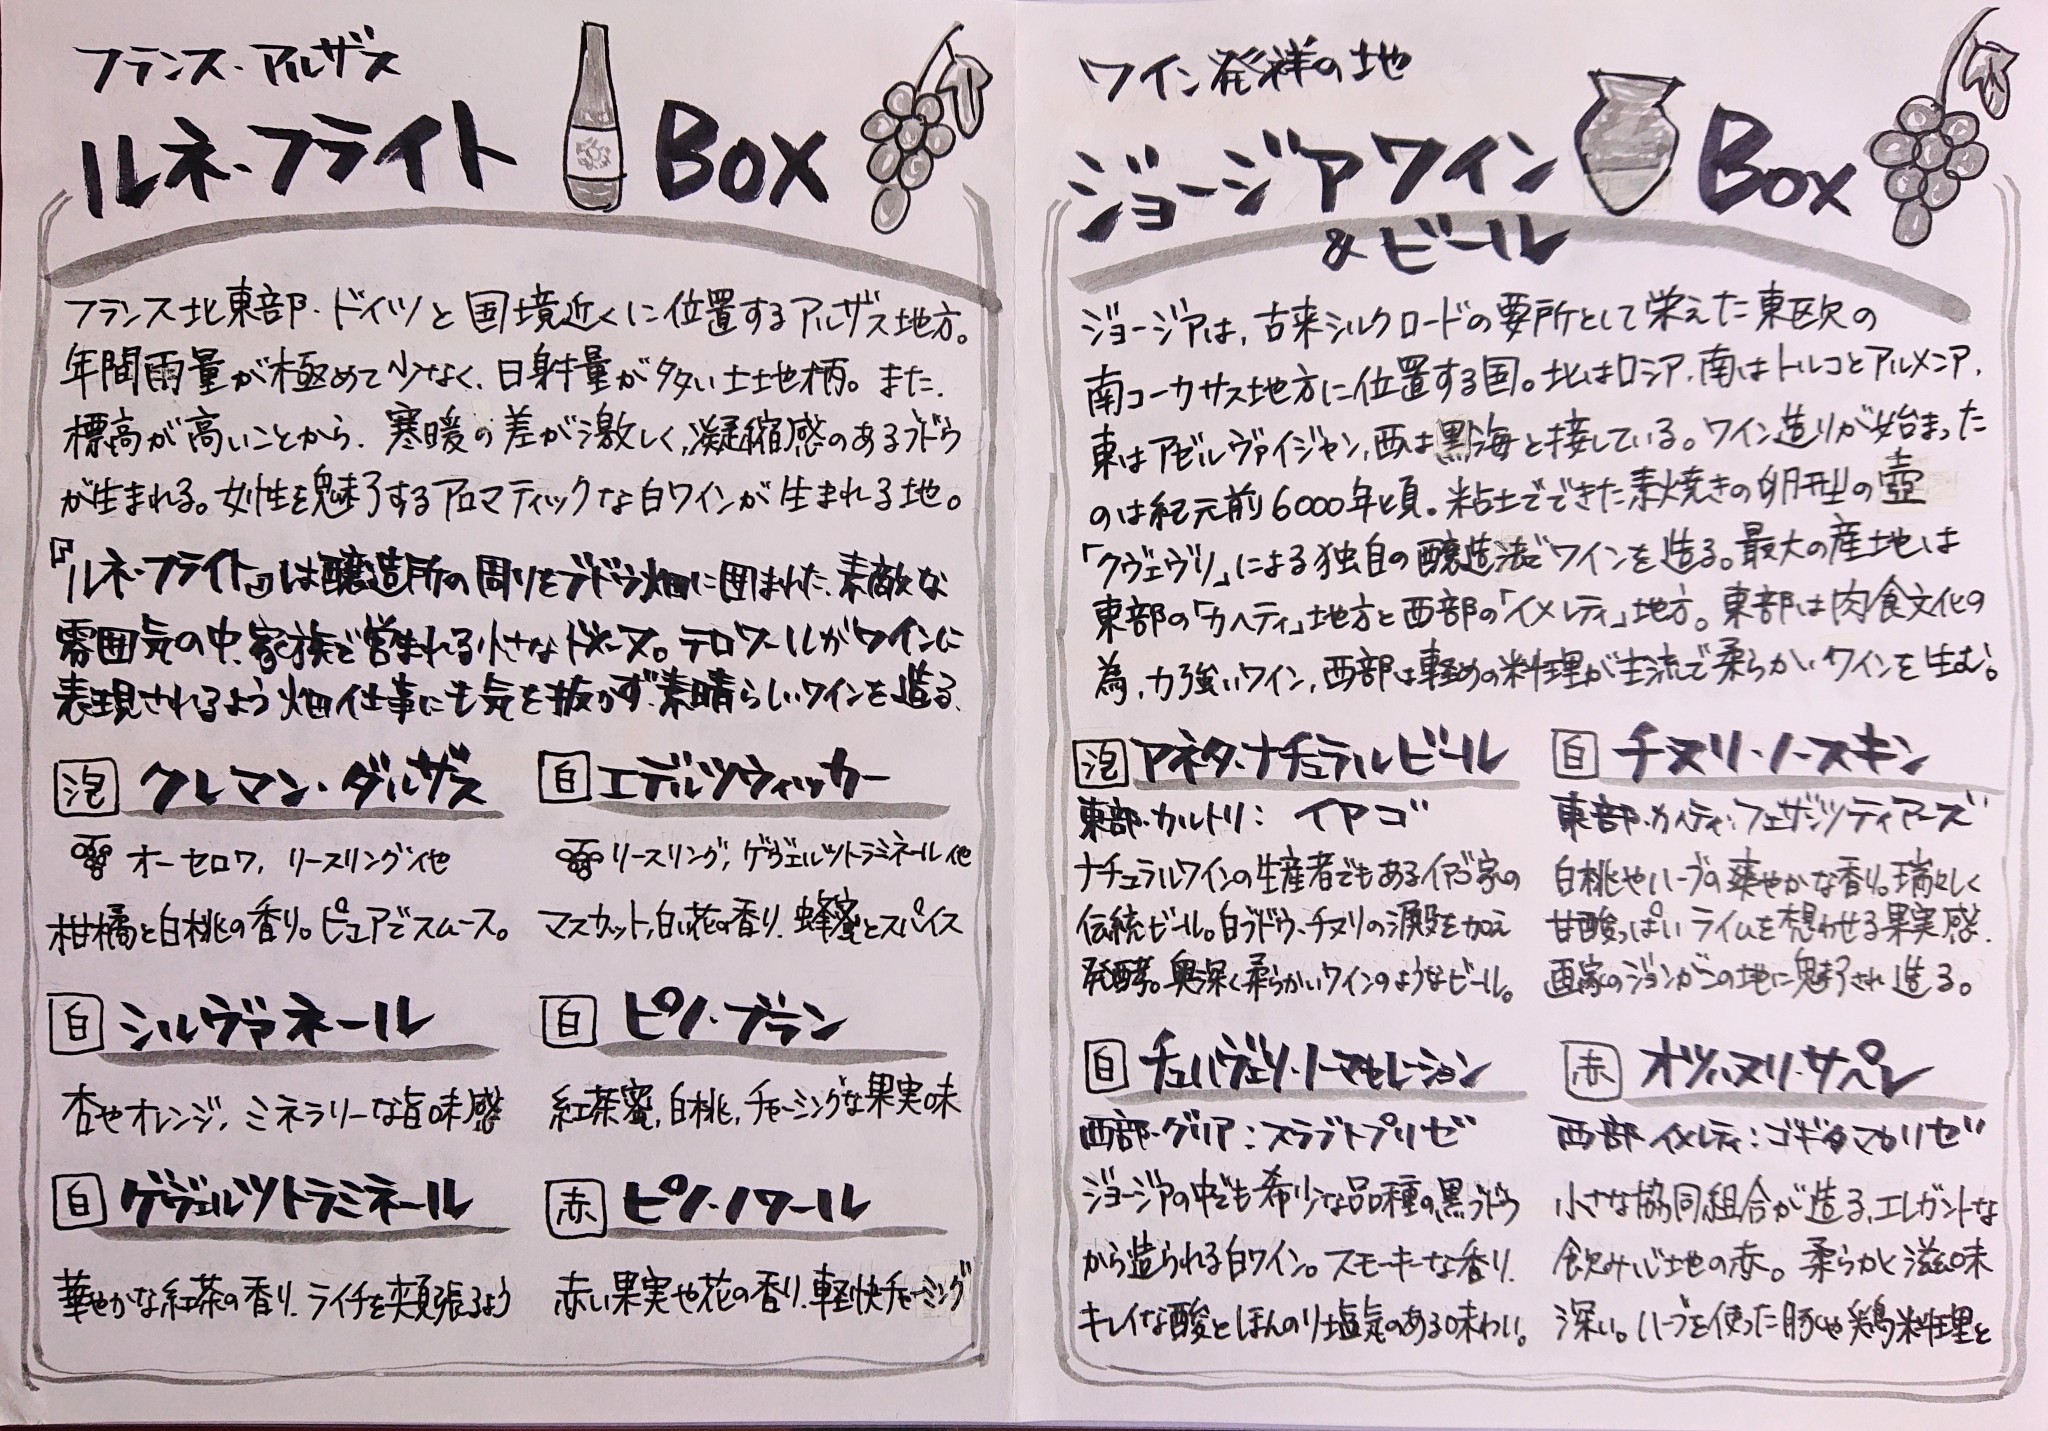 フランス・アルザス
ルネ・フライト Box
フランス北東部・ドイツと国境近くに位置するアルザス地方。
年間雨量が極めて少なく、日射量が多い土地柄。また、
標高が高いことから、寒暖の差が激しく、凝縮感のあるブドウ
が生まれる。女性を魅了するアロマティックな白ワインが生まれる地。
『ルネ・フライト』は醸造所の周りをブドウ畑に囲まれた、素敵な
雰囲気の中、家族で営まれる小さなドメーヌ。テロワールがワインに
表現されるよう畑仕事にも気を抜かず、素晴らしいワインを造る。
泡 クレマン・ダルザス
オーセロワ, リースリング他
柑橘と白桃の香り。ピュアでスムース。
白 エデルツヴィッカー
リースリング, ゲヴェルツトラミネール他
マスカット, 白い花の香り、蜂蜜とスパイス
白 シルヴァネール
杏やオレンジ, ミネラリーな旨味感
白 ピノ・ブラン
紅茶蜜, 白桃, チャーミングな果実味
白 ゲヴェルツトラミネール
華やかな紅茶の香り、ライチを頬張るよう
赤 ピノ・ノワール
赤い果実や花の香り、軽快チャーミング
ワイン発祥の地
ジョージアワイン Box
&ビール
ジョージアは, 古来シルクロードの要所として栄えた東欧の
南コーカサス地方に位置する国。北はロシア, 南はトルコとアルメニア,
東はアゼルヴァイジャン, 西は黒海と接している。ワイン造りが始まった
のは紀元前6000年頃。粘土でできた素焼きの卵型の壺
「クヴェヴリ」による独自の醸造法でワインを造る。最大の産地は
東部の「カヘティ」地方と西部の「イメレティ」地方。東部は肉食文化の
為, 力強いワイン, 西部は軽めの料理が主流で柔らかいワインを生む。
泡 アネタ・ナチュラルビール
東部・カルトリ: イアゴ
ナチュラルワインの生産者でもあるイアゴ家の
伝統ビール。白ブドウ、チヌリの澱を加え
発酵。奥深く柔らかいワインのようなビール。
白 チヌリ・ノースキン
東部・カヘティ: フェザンツティアーズ
白桃やハーブの爽やかな香り。瑞々しく
甘酸っぱいライムを想わせる果実感。
画家のジョンがこの地に魅了され造る。
白 チュハヴェリ・ノーマセレーション
西部・グリア: スラブトプリゼ
ジョージアの中でも希少な品種の黒ブドウ
から造られる白ワイン。スモーキーな香り、
キレイな酸とほんのり塩気のある味わい。
赤 オツハヌリ・サペレ
西部・イメレティ: ゴギタマカリゼ
小さな協同組合が造る, エレガントな
飲み心地の赤。柔らかく滋味
深い。ハーブを使った豚や鶏料理と